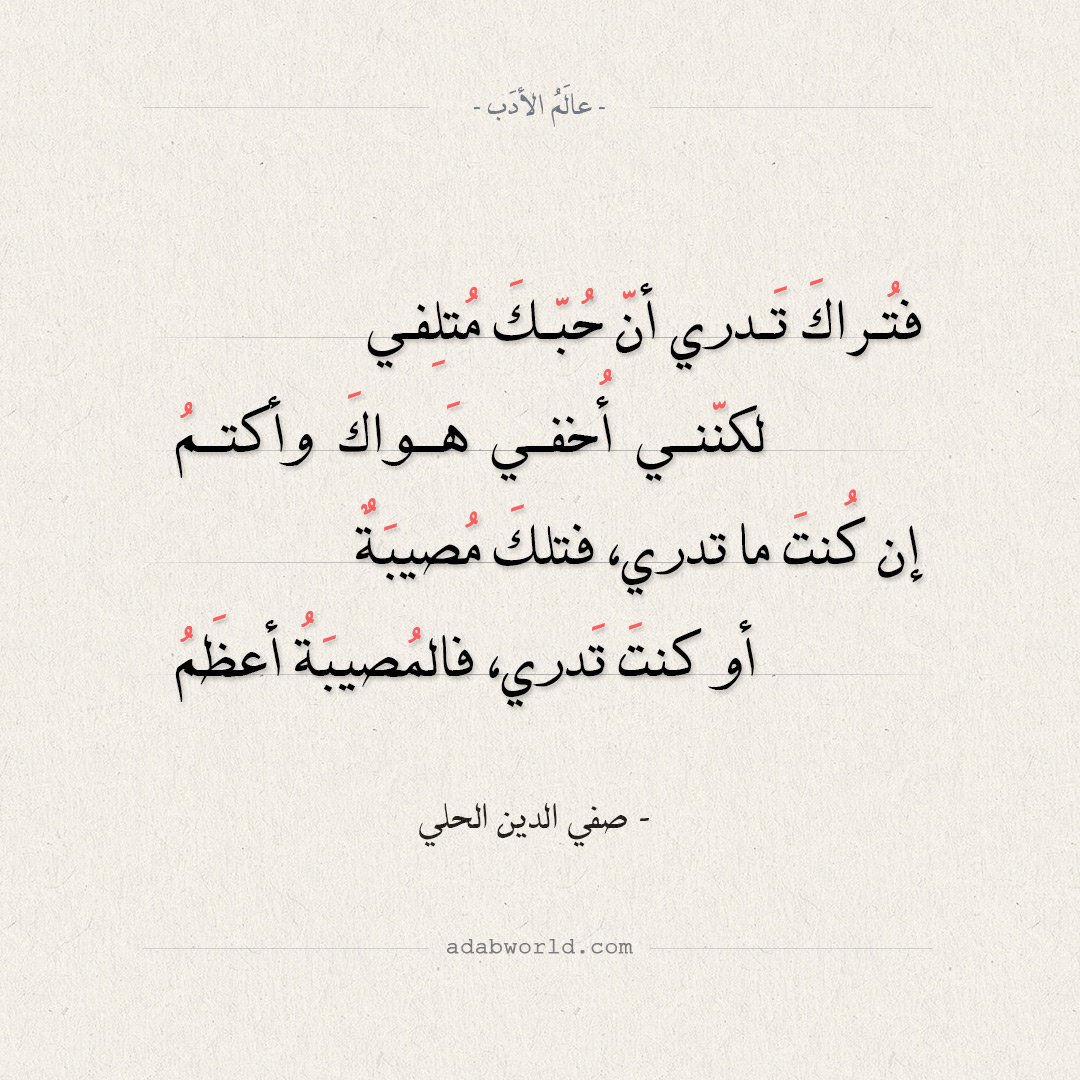 - عالَمُ الأدَب -
فتُـراكَ تَـدري أنّ حُبّـكَ مُتلِفـي
لكنّنـي أُخفـي هَـواكَ وأكتـمُ
إن كُنتَ ما تدري، فتلكَ مُصيبَةٌ
أو كنتَ تَدري، فالمُصيبَةُ أعظَمُ
- صفي الدين الحلي
adabworld.com